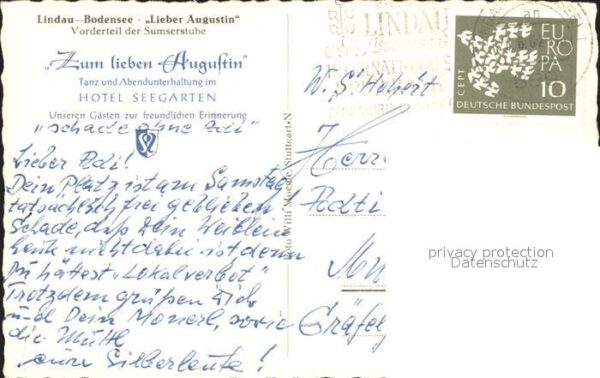 Lindau-Bodensee · „Lieber Augustin"
Vorderteil der Sumserstube
„Zum lieben Augustin"
Tanz und Abendunterhaltung im
HOTEL SEEGARTEN
Unseren Gästen zur freundlichen Erinnerung
„schade ohne Adi"
Lieber Adi!
Dein Platz ist am Samstag
tatsächlich frei geblieben!
Schade, daß Dein Weiblein
heute nicht dabei ist denn
Du hättest „Lokalverbot"
Trotzdem grüßen Dich
und Dein Monerl, sowie
die Mutti
eure Silberleute!
Foto Willi Moegle, Stuttgart-N
LINDAU
Bodensee
W. S. Hubert
Herrn
Adti
Mün
Gräfelf
EUROPA
CEPT
10
DEUTSCHE BUNDESPOST
privacy protection
Datenschutz